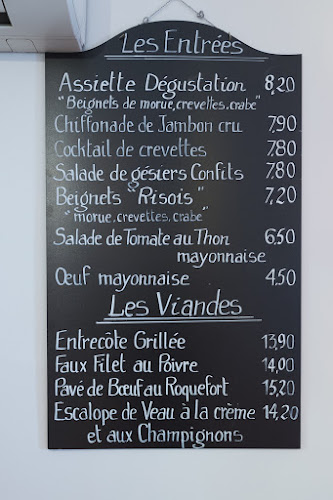 Les Entrées
Assiette Dégustation 8,20
"Beignets de morue, crevettes, crabe"
Chiffonade de Jambon cru 7,90
Cocktail de crevettes 7,80
Salade de gésiers Confits 7,80
Beignets "Risois" 7,20
"morue, crevettes, crabe"
Salade de Tomate au Thon 6,50
mayonnaise
Œuf mayonnaise 4,50
Les Viandes
Entrecôte Grillée 13,90
Faux Filet au Poivre 14,00
Pavé de Bœuf au Roquefort 15,20
Escalope de Veau à la crème 14,20
et aux Champignons